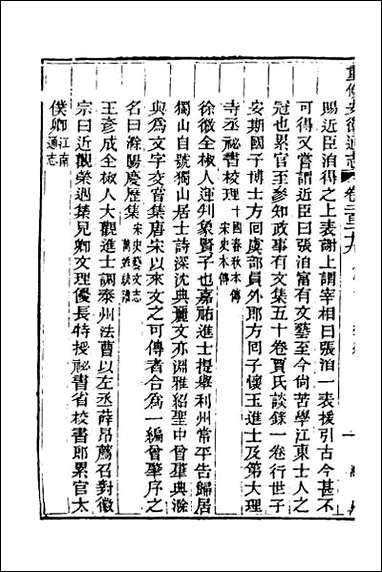 重修安徽通志 卷二百二十九
賜近臣洎得之上表謝上謂宰相曰張洎一表援引古今甚不
可得又嘗謂近臣曰張洎富有文藝至今尚苦學江東士人之
冠也累官至參知政事有文集五十卷賈氏談錄一卷行世子
安期國子博士方回虞部員外郎方回子懷玉進士及第大理
寺丞祕書校理 十國春秋本傳 宋史本傳
徐徽全椒人運判象賢子也嘉祐進士提舉利州常平告歸居
獨山自號獨山居士詩深沈典麗文亦淵雅紹聖中曾肇典滁
與為文字交嘗集唐宋以來文之可傳者合為一編曾肇序之
名曰滁陽慶歷集 宋史藝文志 萬姓統譜
王彥成全椒人大觀進士調泰州法曹以左丞薛昂薦召對徽
宗曰近觀榮遇集見卿文理優長特授祕書省校書郎累官太
僕卿 江南通志